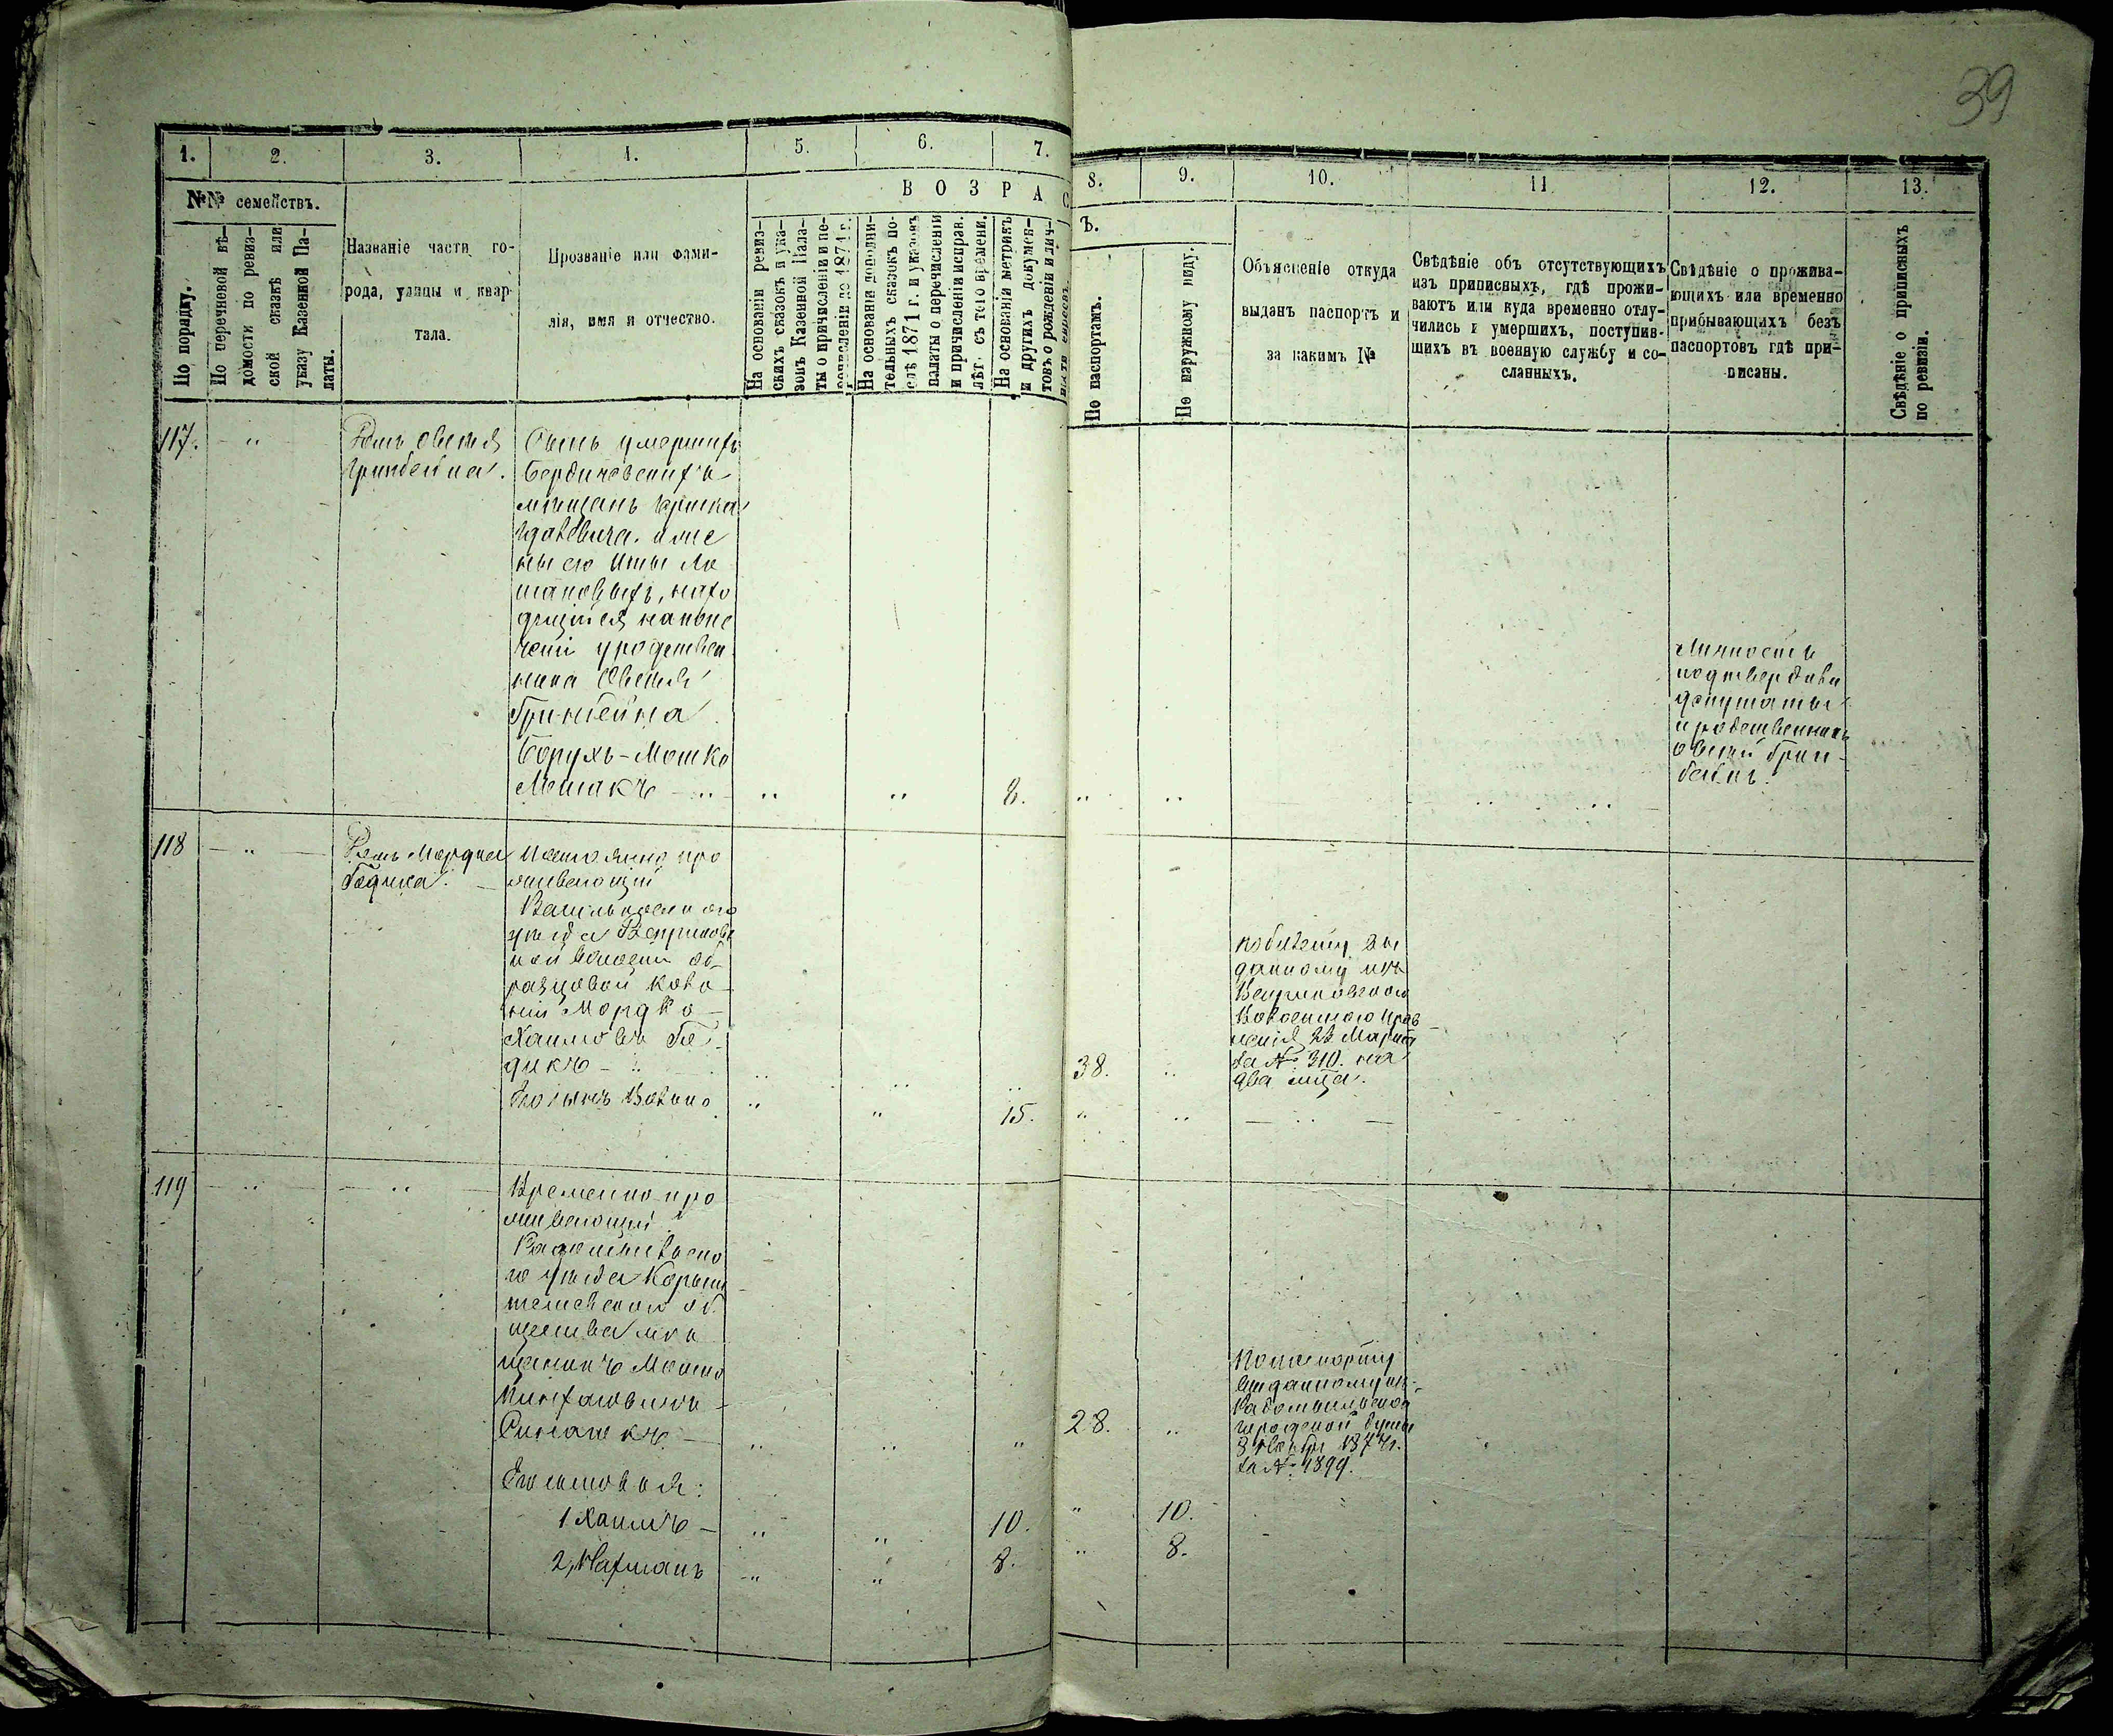 39
1.
2.
3.
4.
5.
6.
7.
8.
9.
10.
11
12.
13.
№№ семействъ.
В О З Р А С
Ъ.
По порядку.
По перечневой вѣ-
домости по ревиз-
ской сказкѣ или
указу Казенной Па-
латы.
Названіе части го-
рода, улицы и квар-
тала.
Прозваніе или фами-
лія, имя и отчество.
На основаніи ревиз-
скихъ сказокъ и ука-
зовъ Казенной Пала-
ты о причисленіи и пе-
речисленіи до 1871 г.
На основаніи дополни-
тельныхъ сказокъ по-
слѣ 1871 г. и указовъ
палаты о перечисленіи
и причисленіи исправ.
лѣт. съ того времени.
На основаніи метрикъ
и другихъ докумен-
товъ о рожденіи и лич-
По паспортамъ.
По наружному виду.
Объясненіе откуда
выданъ паспортъ и
за какимъ №
Свѣдѣніе объ отсутствующихъ
изъ приписныхъ, гдѣ прожи-
ваютъ или куда временно отлу-
чились и умершихъ, поступив-
щихъ въ военную службу и со-
сланныхъ.
Свѣдѣніе о прожива-
ющихъ или временно
прибывающихъ безъ
паспортовъ гдѣ при-
писаны.
Свѣдѣніе о приписныхъ
по ревизіи.
117.
Домъ Овшія
Гринбейна.
Сынъ умершихъ
Бердичевскихъ
мѣщанъ
и же
ны его
находящійся на попе
ченіи у родствен
ника Овшія
Гринбейна
Борухъ-Мошко
Мешакъ
8.
Личность
подтвердили
депутаты
и родственникъ
Овшій Грин-
бейнъ.
118
Домъ Мордка
Бодика.
Постоянно про
живающій
Васильковского
уѣзда Веприков
ской волости об-
разцовой коло-
ніи Мордко
Хаимовъ Бо-
дикъ
38.
По билету вы
данному изъ
Веприковского
Волостного Прав
ленія 22 Марта
за № 310. на
два м-ца.
Его сынъ Волько
15.
119
Временно про
живающій
Радомысльско
го уѣзда Корыс
тышевского об
щества мѣ
щанинъ Мошко
Пинхасовичъ
28.
По паспорту
выданному изъ
Радомысльской
городской Думы
1874 г.
за № 1899.
Его сыновья:
1 Хаимъ
10.
10.
2, Нахманъ
8.
8.